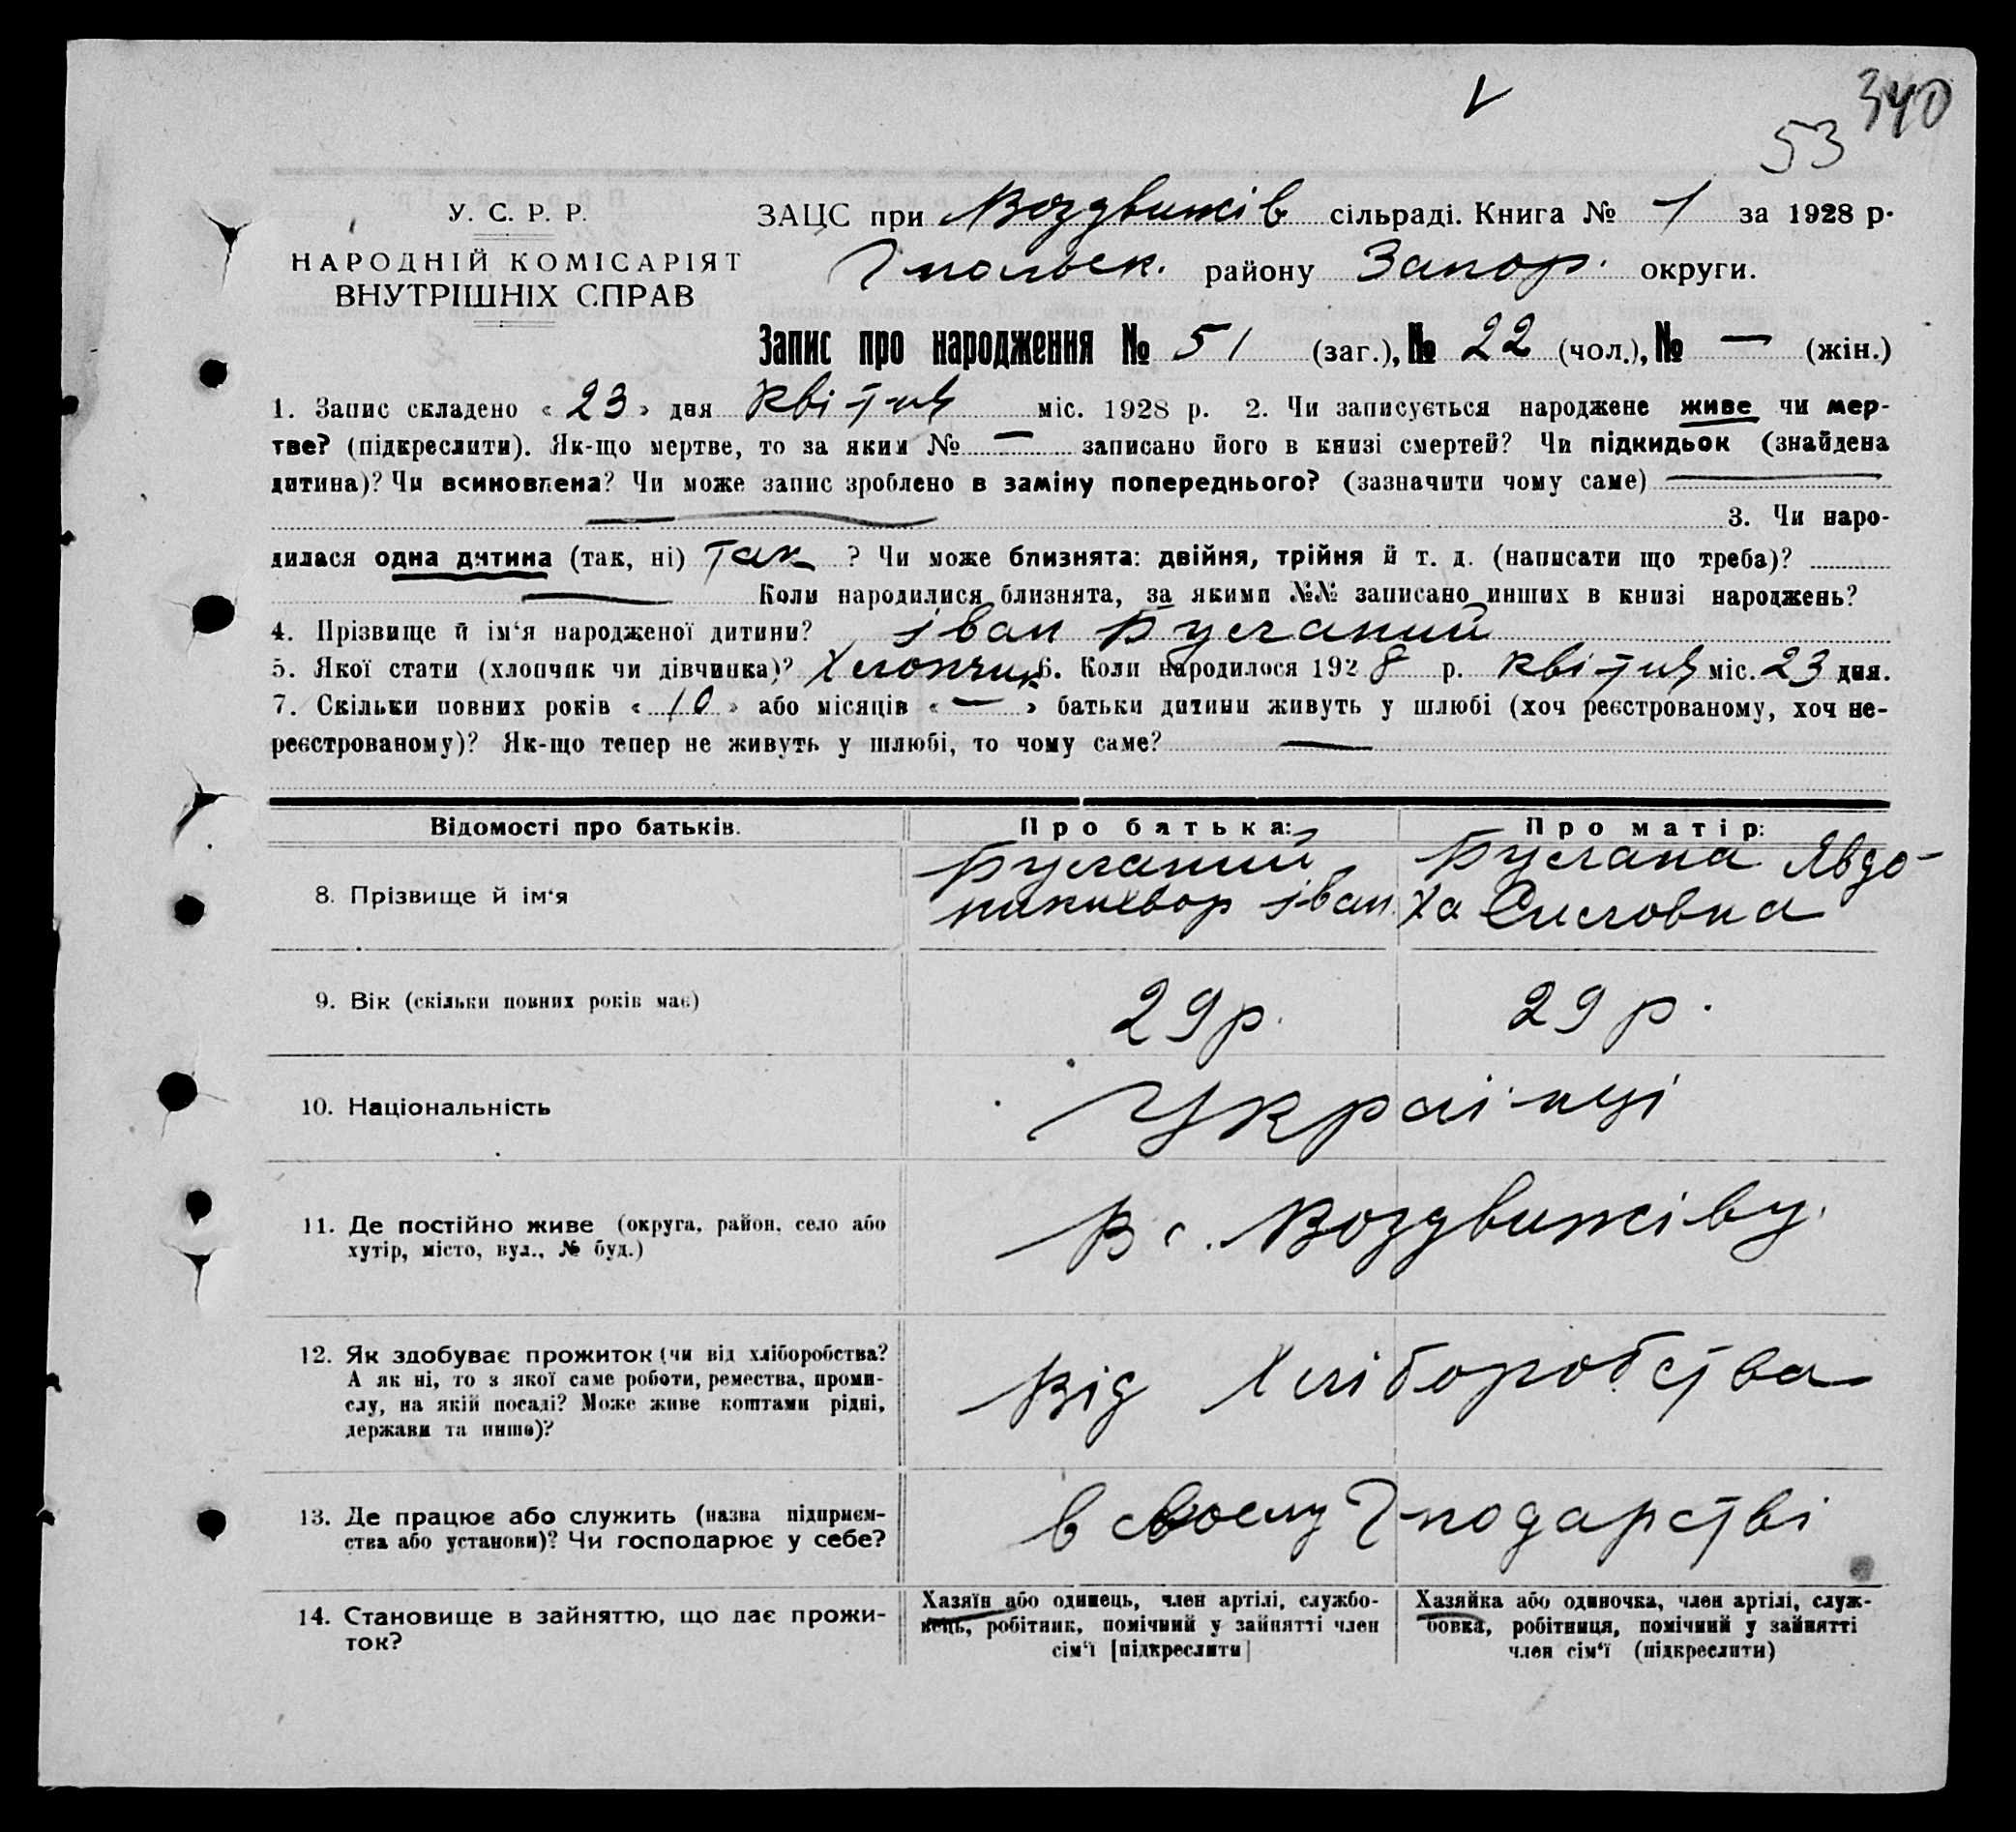 340
53
У. С. Р. Р.
НАРОДНІЙ КОМІСАРІЯТ
ВНУТРІШНІХ СПРАВ
ЗАЦС при Воздвижів сільраді. Книга № 1 за 1928 р.
району Запор. округи.
Запис про народження № 51 (заг.), № 22 (чол.), № — (жін.)
1. Запис складено « 23 » дня квітня міс. 1928 р. 2. Чи записується народжене живе чи мер-
тве? (підкреслити). Як-що мертве, то за яким № — записано його в книзі смертей? Чи підкидьок (знайдена
дитина)? Чи всиновлена? Чи може запис зроблено в заміну попереднього? (зазначити чому саме) —
— 3. Чи наро-
дилася одна дитина (так, ні) Так ? Чи може близнята: двійня, трійня й т. д. (написати що треба)?
— Коли народилися близнята, за якими №№ записано инших в книзі народжень?
4. Прізвище й ім'я народженої дитини? іван
5. Якої стати (хлопчик чи дівчинка)? Хлопчик 6. Коли народилося 1928 р. квітня міс. 23 дня.
7. Скільки повних років « 10 » або місяців « — » батьки дитини живуть у шлюбі (хоч реєстрованому, хоч не-
реєстрованому)? Як-що тепер не живуть у шлюбі, то чому саме? —
Відомості про батьків. Про батька: Про матір:
8. Прізвище й ім'я
іван Явдо-
ха
9. Вік (скільки повних років має) 29 р. 29 р.
10. Національність Україінці
11. Де постійно живе (округа, район, село або
хутір, місто, вул., № буд.)
В с. Воздвижіву.
12. Як здобуває прожиток (чи від хліборобства?
А як ні, то з якої саме роботи, ремества, проми-
слу, на якій посаді? Може живе коштами рідні,
держави та инше)?
Від Хліборобства
13. Де працює або служить (назва підприєм-
ства або установи)? Чи господарює у себе?
в своєму Гподарстві
14. Становище в зайняттю, що дає прожи-
ток?
Хазяїн або одинець, член артілі, службо-
вець, робітник, помічний у зайнятті член
сім'ї [підкреслити]
Хазяйка або одиночка, член артілі, служ-
бовка, робітниця, помічний у зайнятті
член сім'ї (підкреслити)